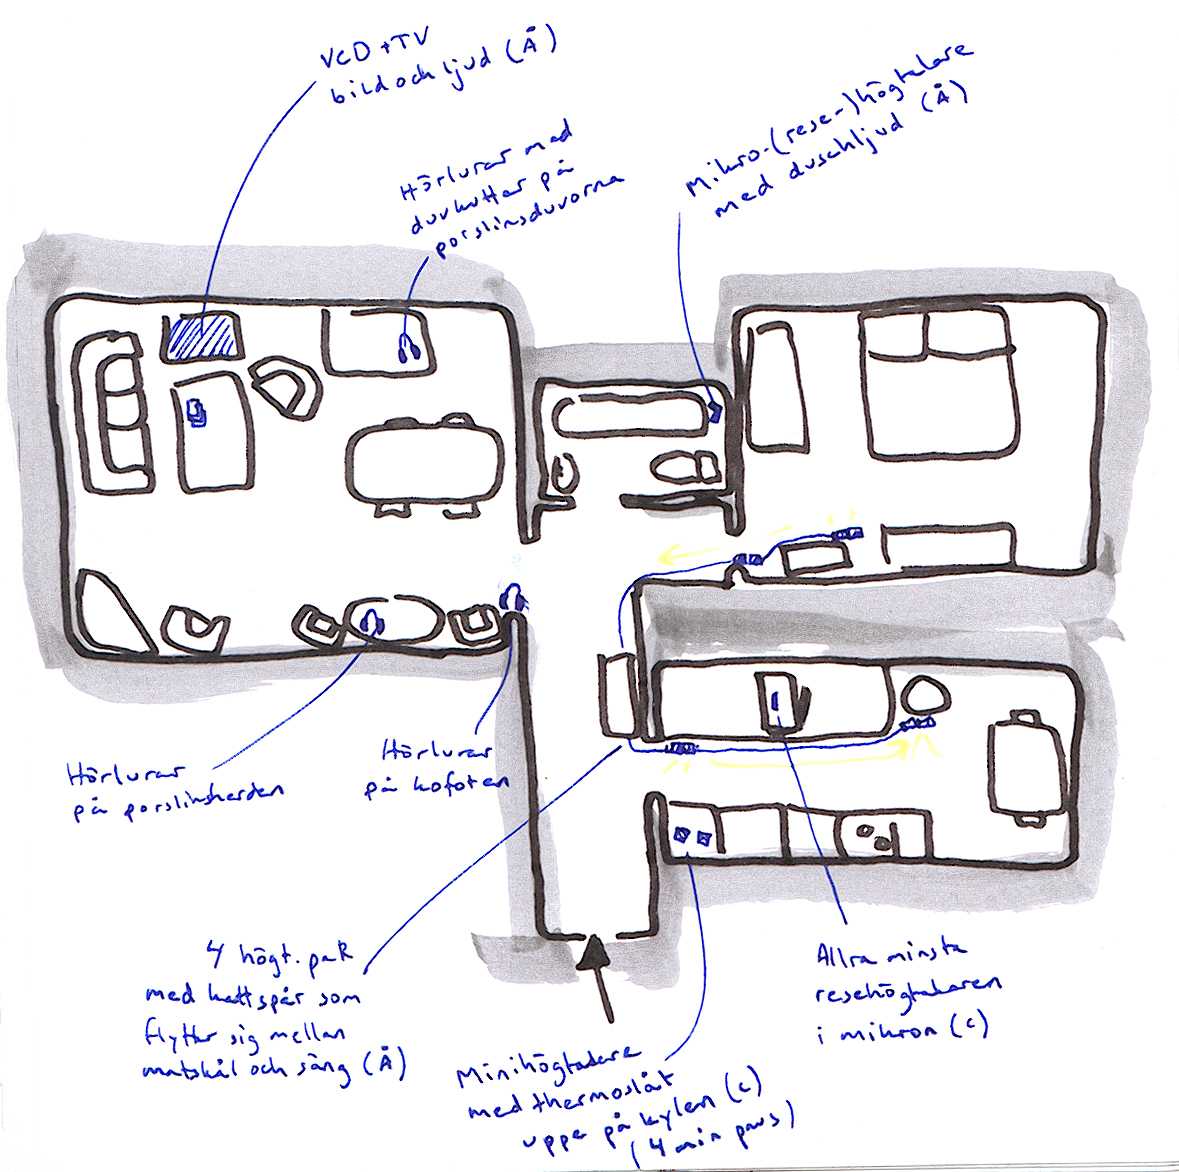 VCD + TV
bild och ljud (Å)
Hörlurar med
duvkutter på
porslinsduvorna
Mikro-(rese-)högtalare
med duschljud (Å)
Hörlurar
på porslinsherden
Hörlurar
på kofoten
4 högt. paR
med kattspår som
flyttar sig mellan
matskål och säng (Å)
Minihögtalare
med thermoslåt
uppe på kylen (c)
(4 min paus)
Allra minsta
resehögtalaren
i mikron (c)